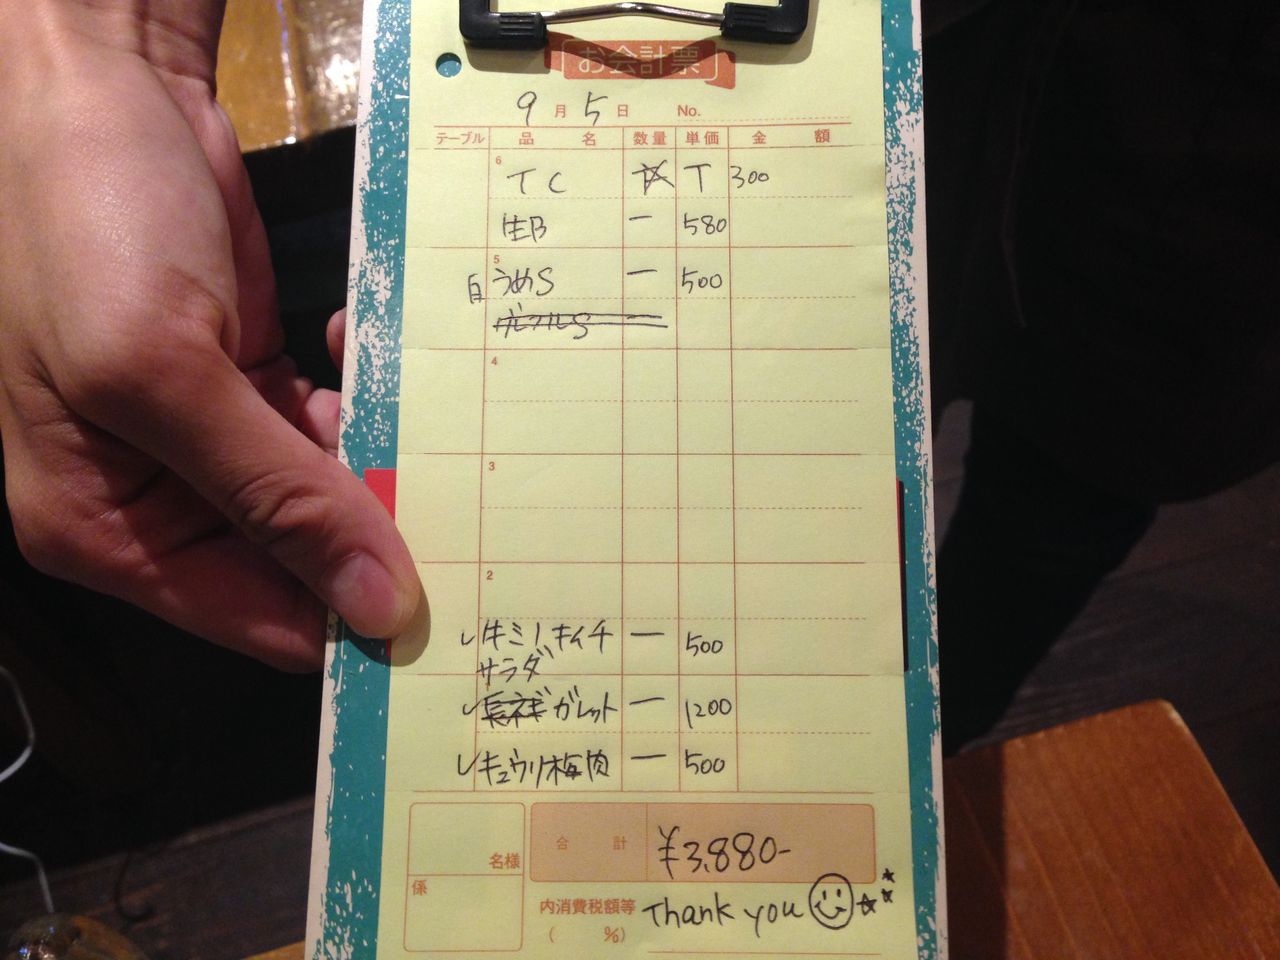 お会計票
9月5日 No.
テーブル 品名 数量 単価 金額
6
TC T 300
生B 一 580
5
自 うめS 一 500
4
3
2
キミノキイチ 一 500
サラダ
長ネギ ガレット 一 1200
キュウリ梅肉 一 500
合計 ¥3,880-
名様
係
内消費税額等
( %)
Thank you